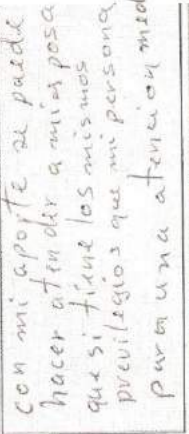 con mi aporte se puede
hacer atender a mi esposa
que si tiene los mismos
previlegios que mi persona
para una atencion med